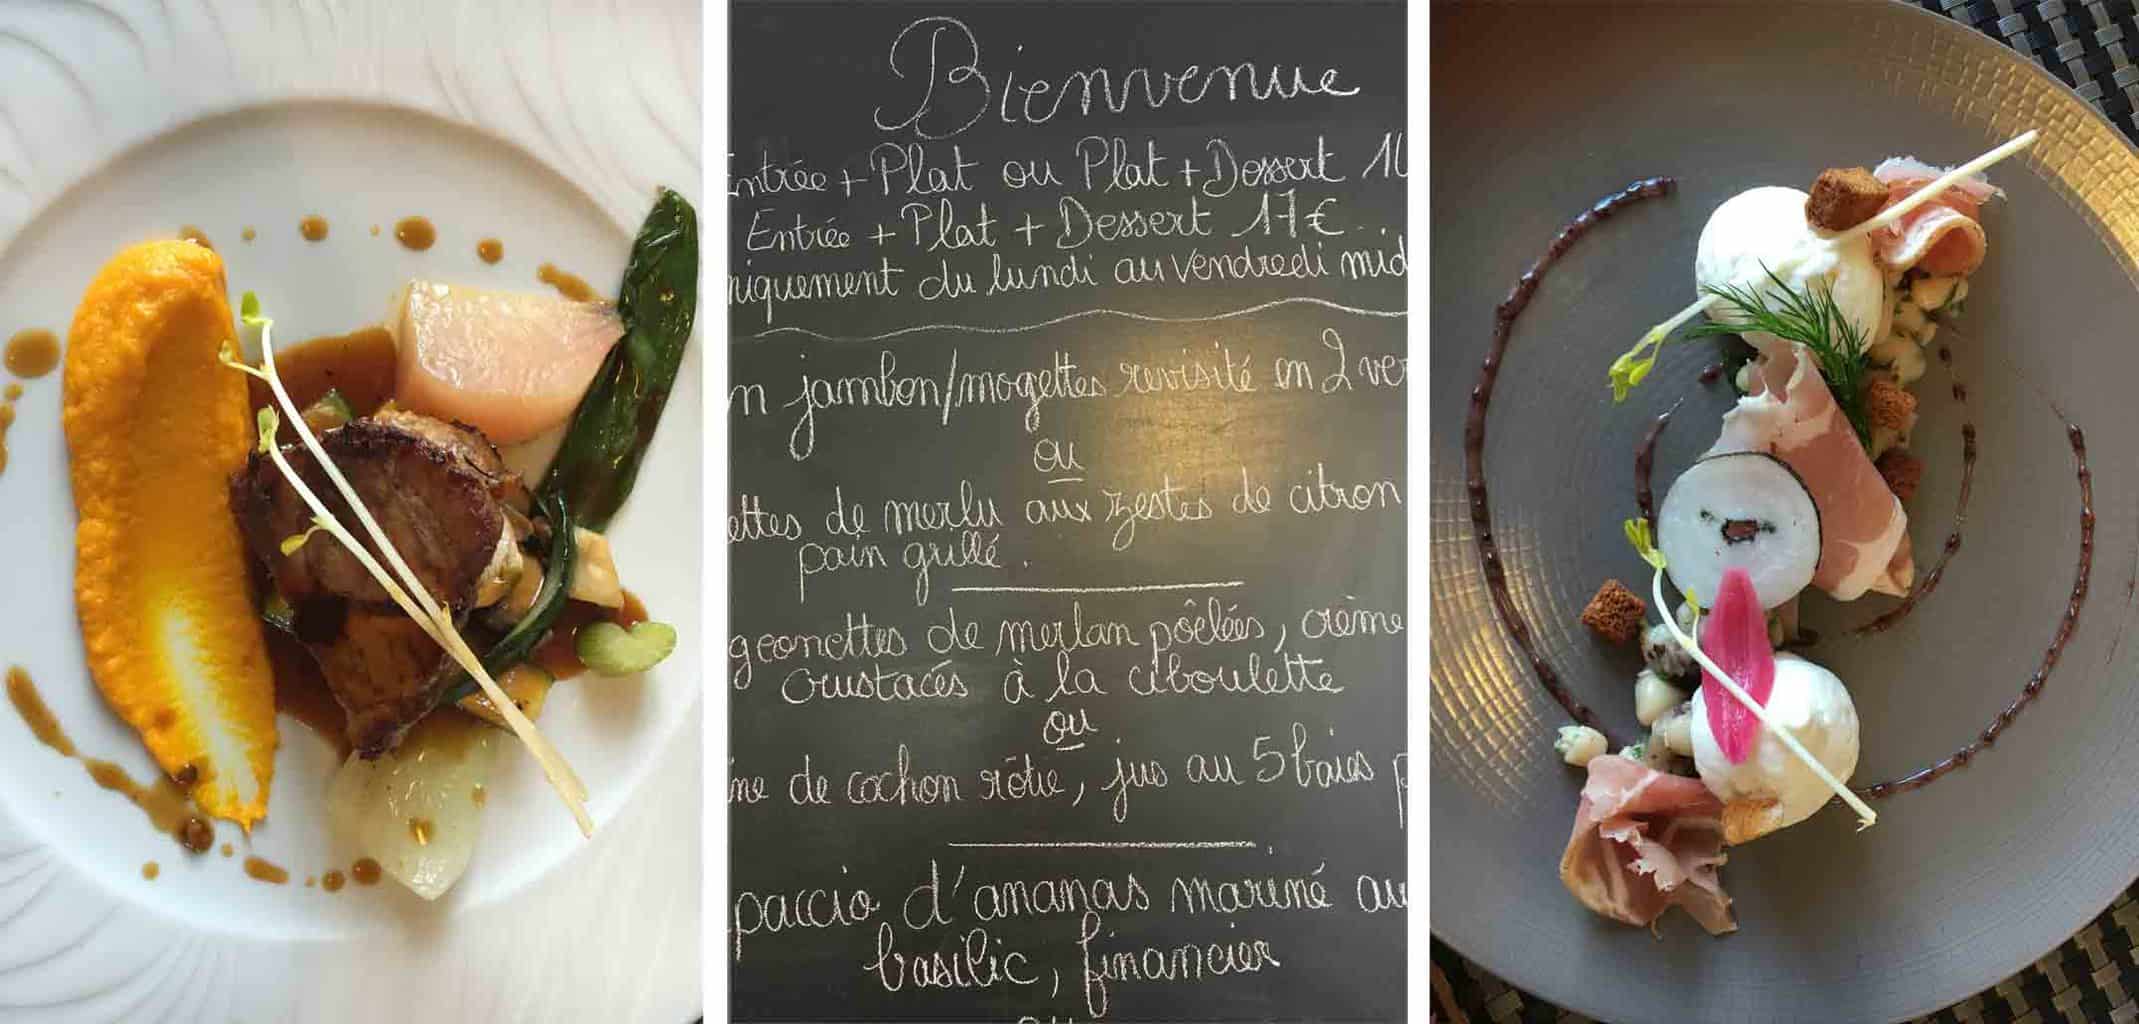 Bienvenue
Entrée + Plat ou Plat + Dessert
Entrée + Plat + Dessert 17€
niquement du lundi au vendredi mid
n jambon/mogettes revisité en 2 ver
ou
ettes de merlu aux zestes de citron
pain grillé.
geonettes de merlan pôêlées, crème
crustacés à la ciboulette
ou
ne de cochon rôtie, jus au 5 baies p
paccio d'ananas mariné au
basilic, financier
ou